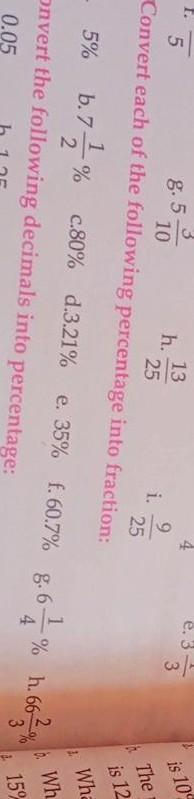 5 g. 5 3/10 h. 13/25 i. 9/25
4 e. 3 1/3
Convert each of the following percentage into fraction:
5% b. 7 1/2 % c. 80% d. 3.21% e. 35% f. 60.7% g. 6 1/4 % h. 66 2/3 %
onvert the following decimals into percentage:
0.05
is 10%
b. The
is 12
a. Wha
b. Wh
a. 15%